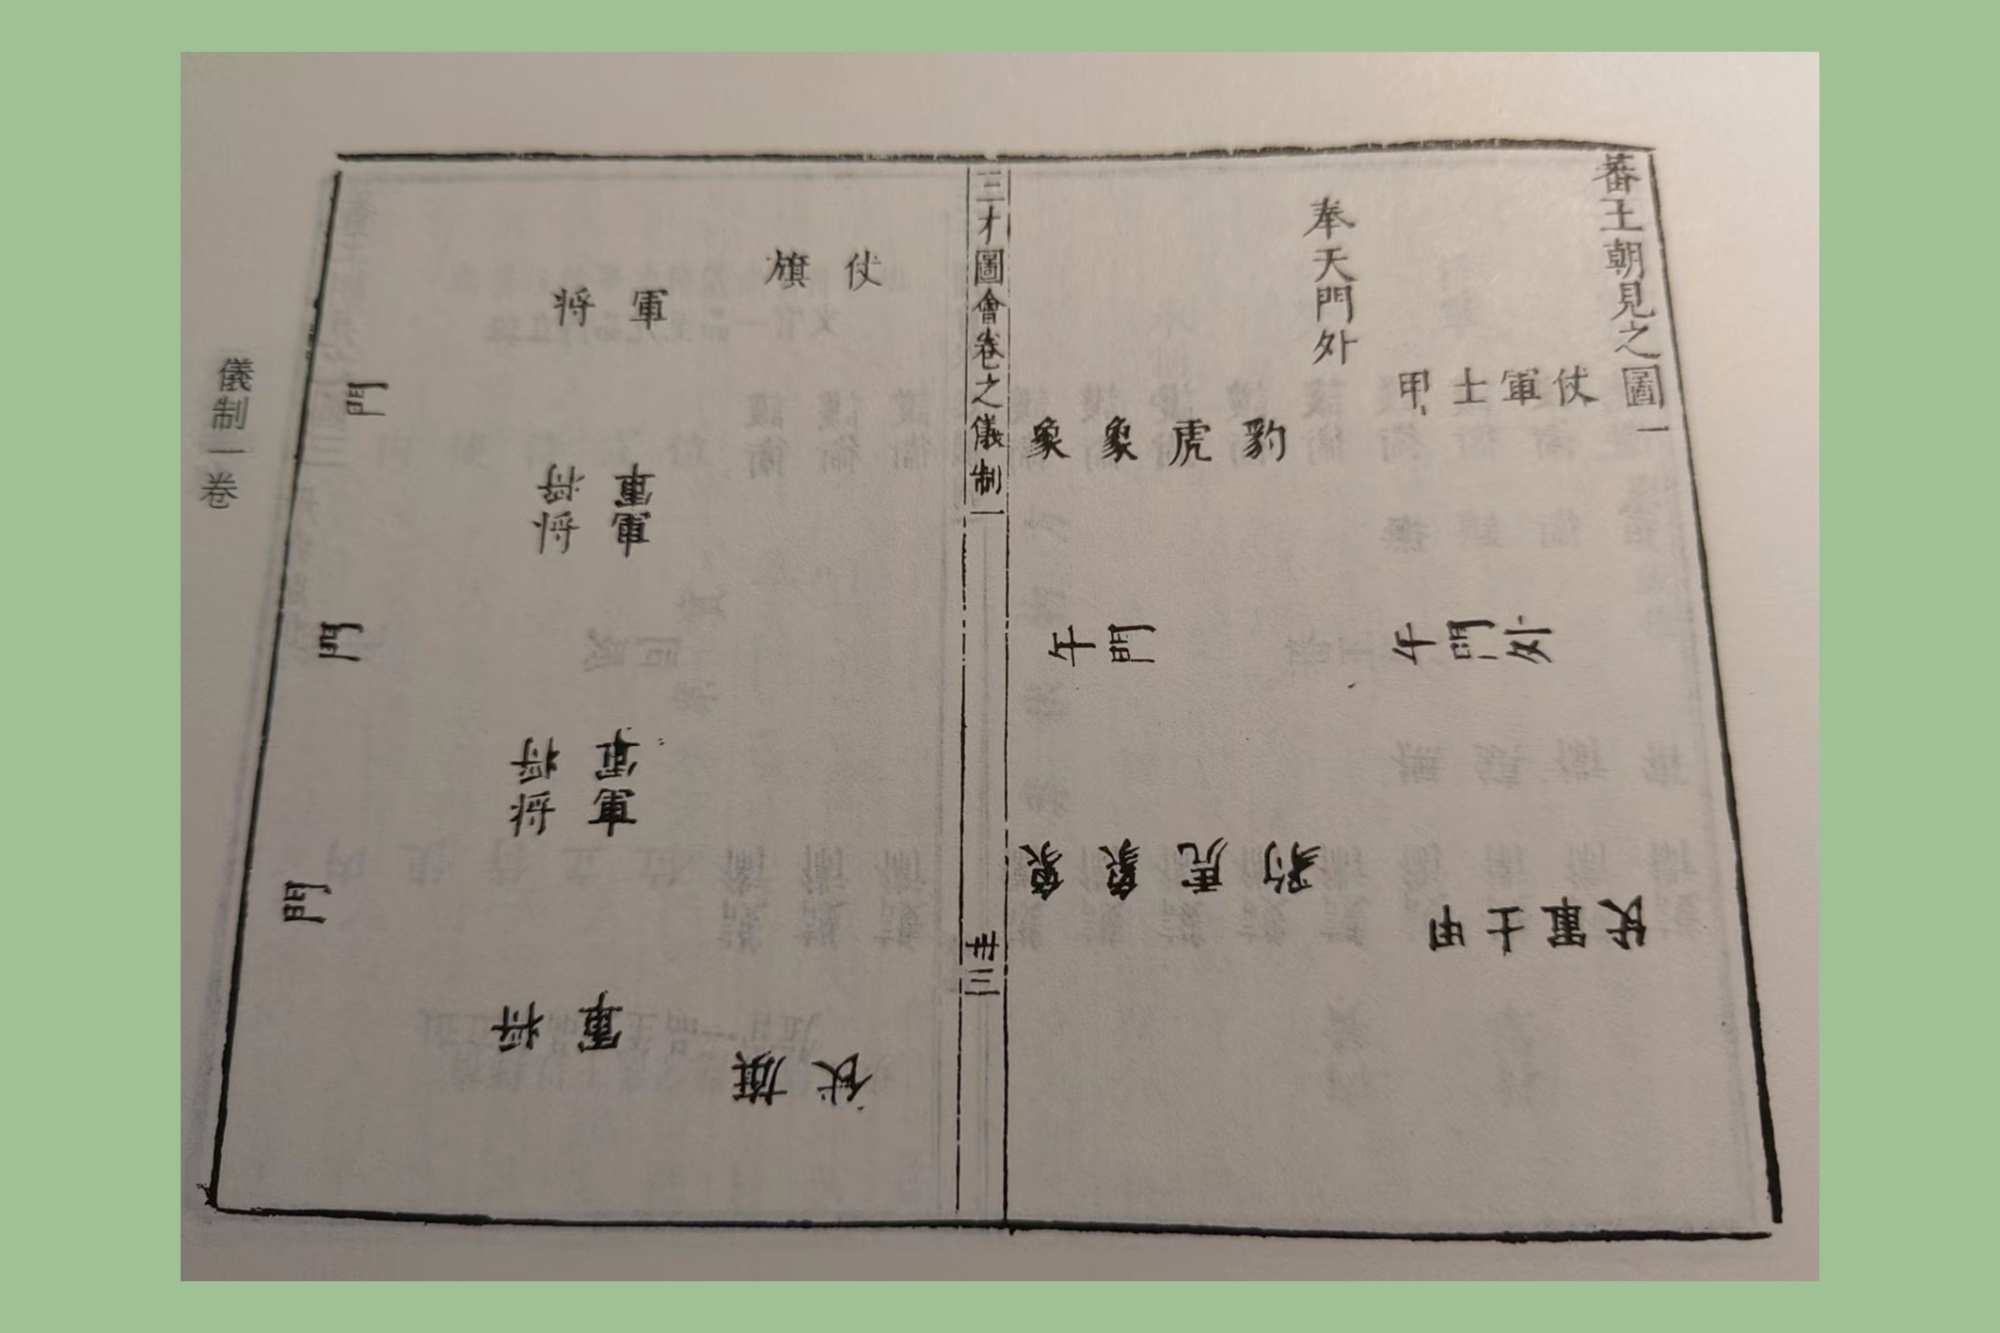 蕃王朝見之圖一
奉天門外
甲士軍仗
象象虎豹
午門
午門外
象象虎豹
甲士軍仗
三才圖會卷之儀制
卅三
旗仗
将軍
将軍
将軍
将軍
将軍
将軍
旗仗
門
門
門
儀制一卷